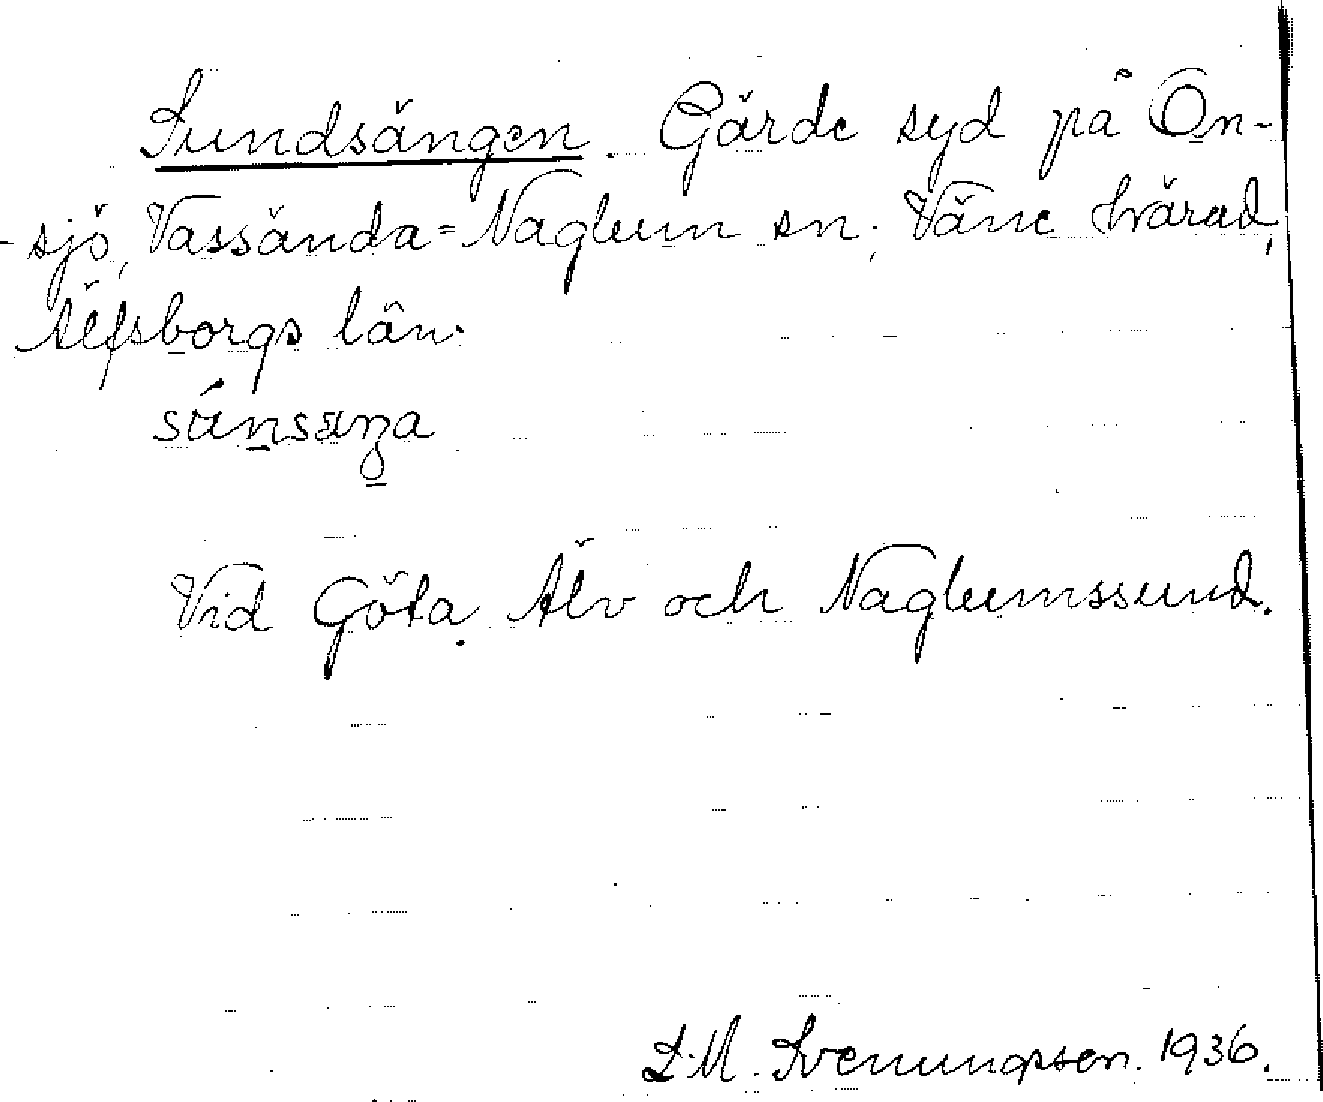 Sundsängen. Gärde syd på Ön-
-sjö, Vassända=Naglum sn; Väne härad,
Älfsborgs län.
Vid Göta Älv och Naglumssund.
L.M. Svenungsson. 1936.